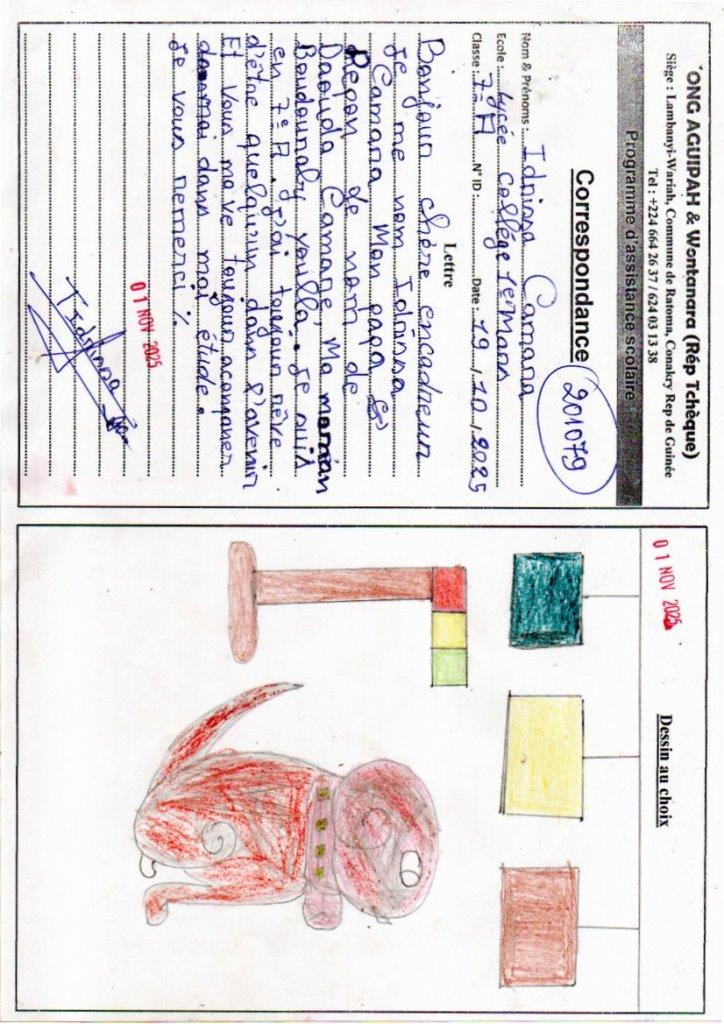 ONG AGUIPAH & Wontanara (Rép Tchèque)
Siège : Lambanyi-Wariah, Commune de Ratoma, Conakry Rep de Guinée
Tel : +224 664 26 37 / 624 03 13 38
Programme d'assistance scolaire
Correspondance
201079
Nom & Prénoms : Idrissa Camara
Ecole : Lycée collège 1er Mars
Classe : 7e A N° ID : Date : 19 / 10 / 2025
Lettre
Bonjour chère encadreur
Je me nom Idrissa
Camara Mon papa
Reçon de nom de
Daouda Camara, Ma maman
Youlla. Je suis
en 7e A. j'ai toujour rêve
d'être quelqu'un dans l'avenir
Et vous mave toujour acompaner
dans moi étude.
Je vous remerci ٪
01 NOV 2025
Idrissa
01 NOV 2025
Dessin au choix